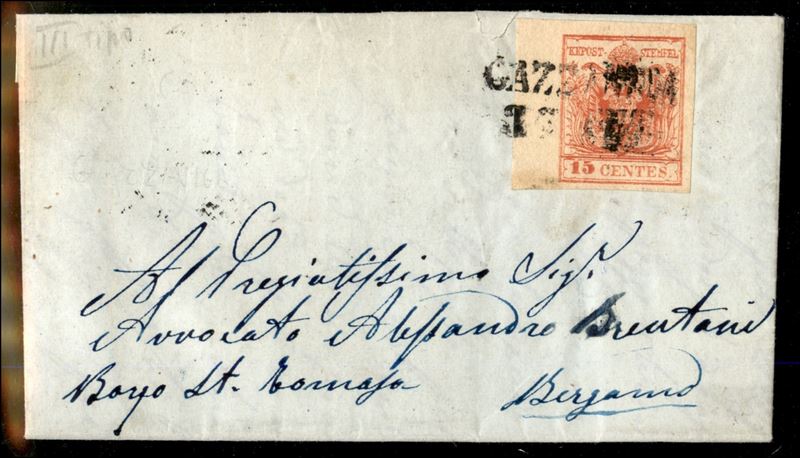 III tipo
KEPOST-STEMPEL
GAZZANIGA
15 CENTES.
Al Pregiatissimo Sigr.
Avvocato Alessandro Brentani
Borgo St. Tomaso Bergamo